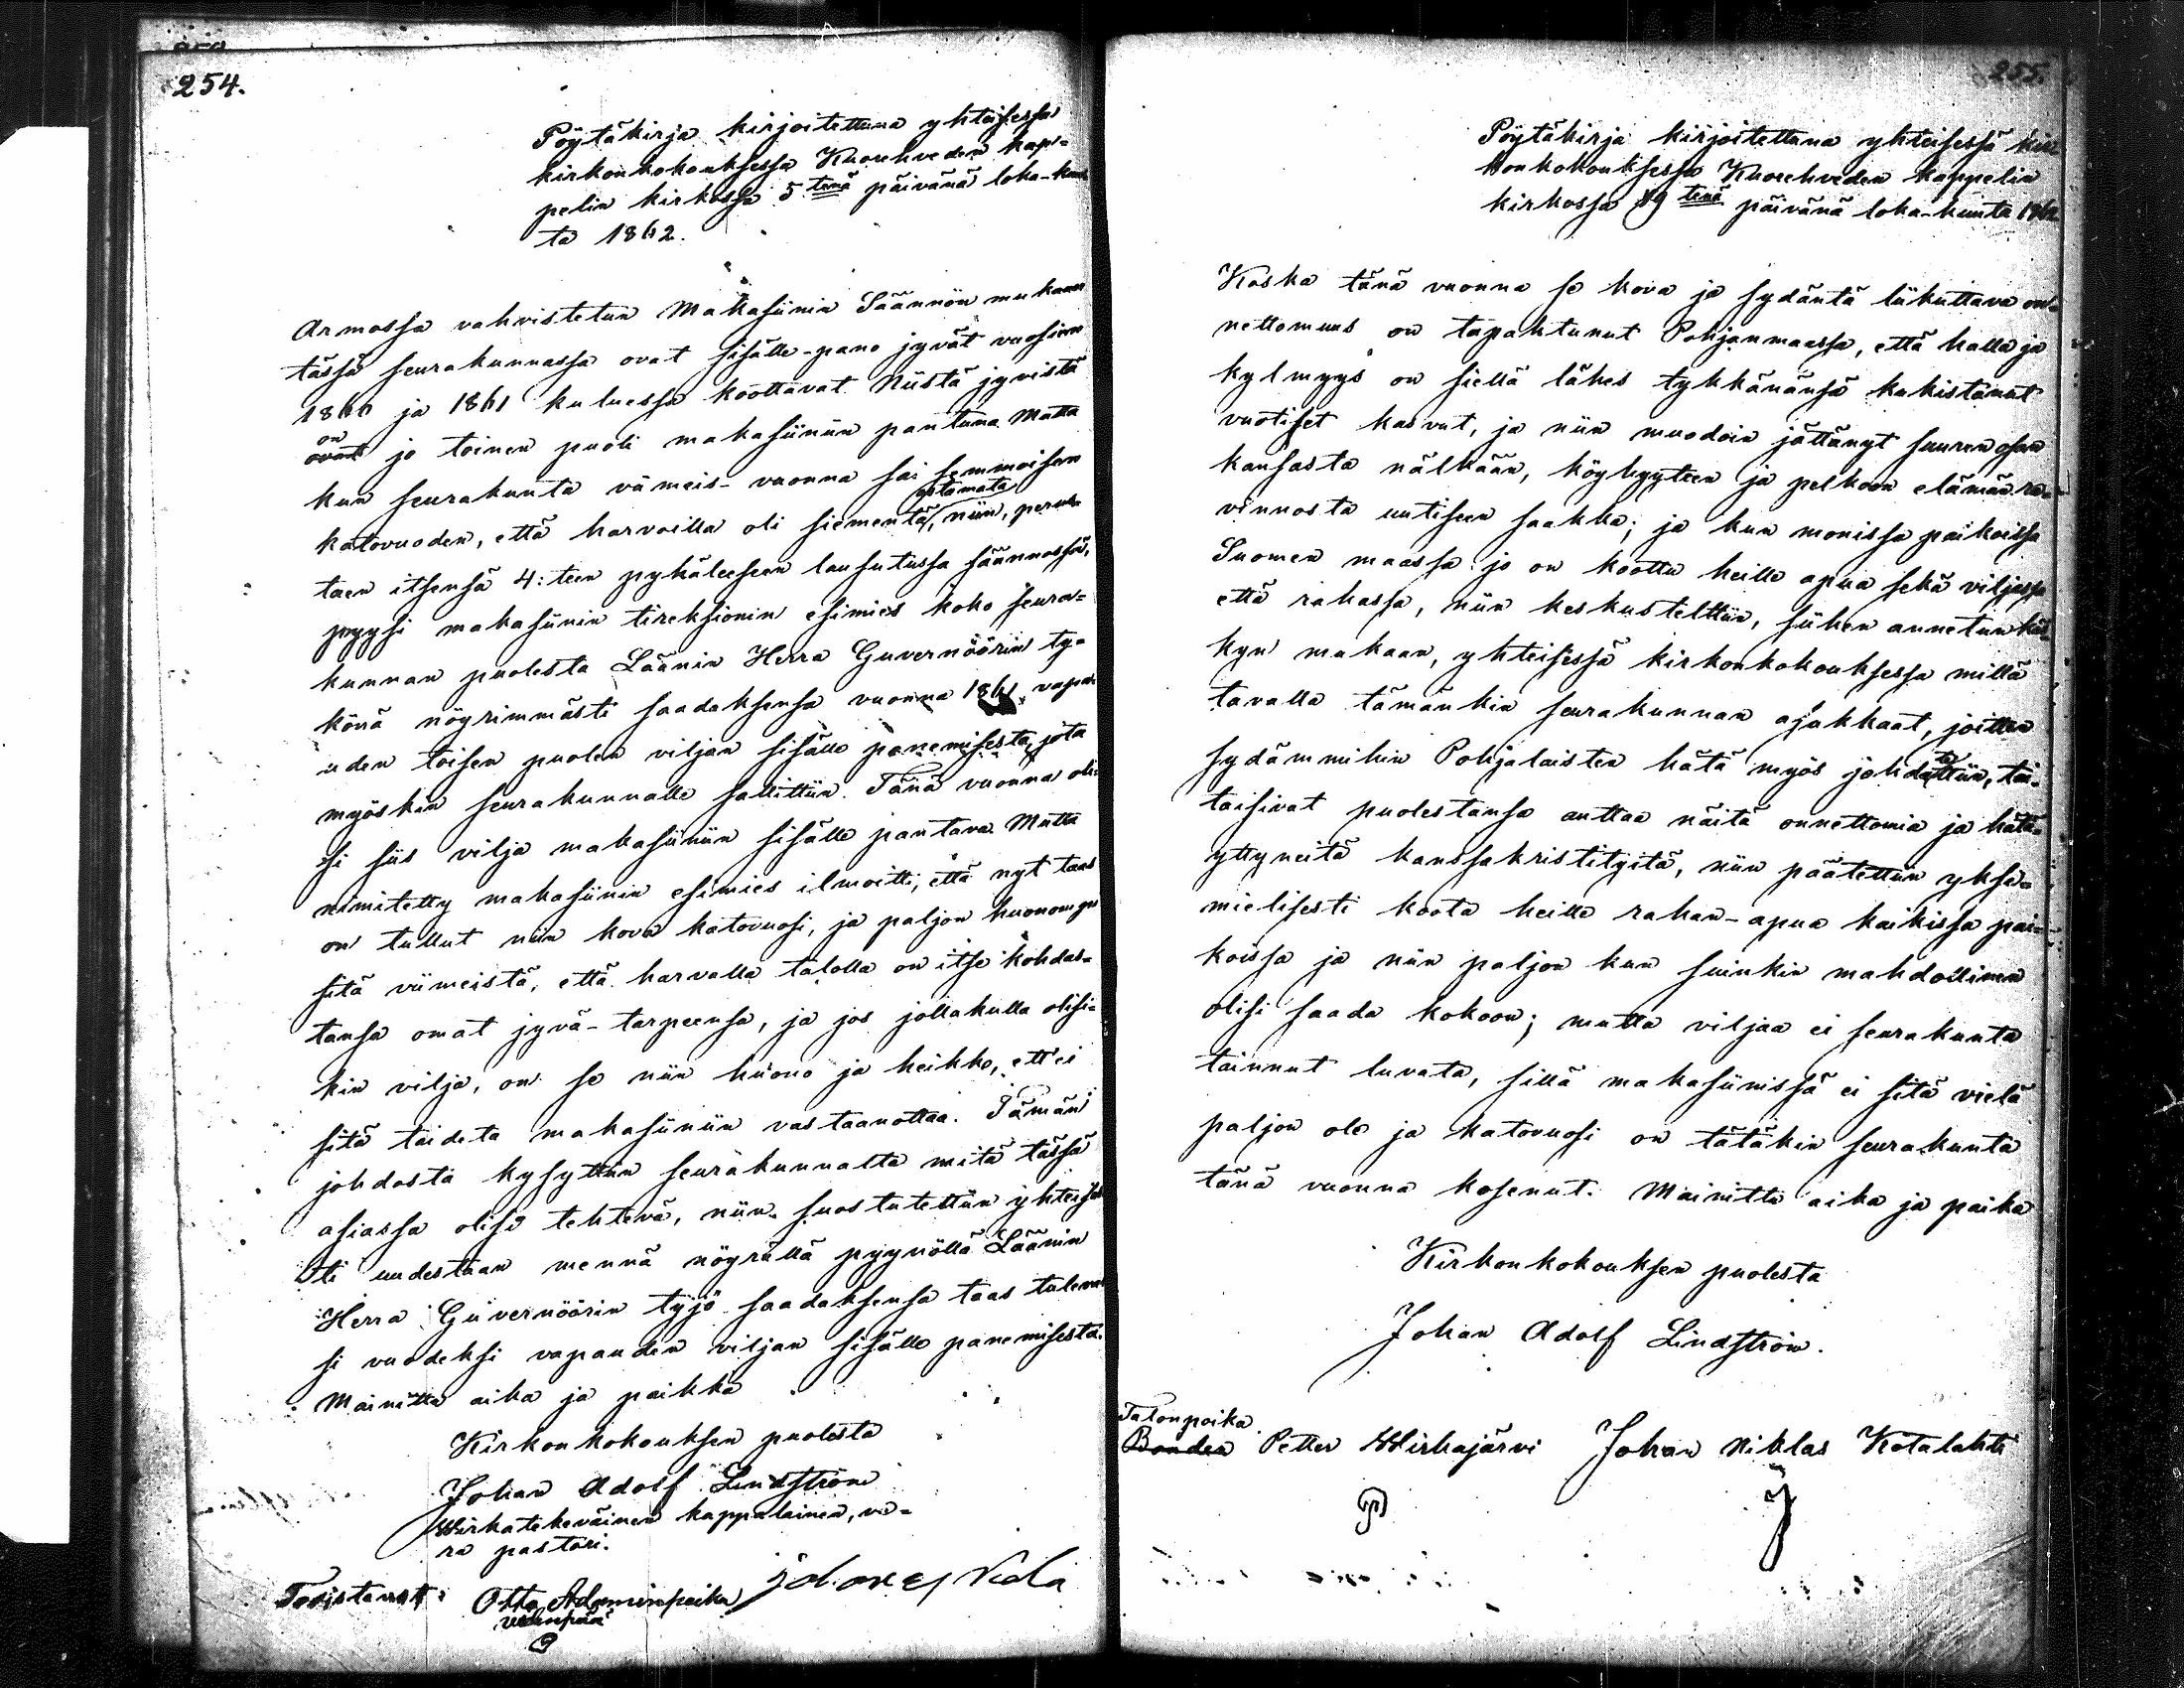 254.
Pöytäkirja kirjoitettuna yhteisessä
kirkonkokouksessa Kuorehveden kap-
pelin kirkossa 5 tenä päivänä loka-kuu-
ta 1862.
Armossa vahvistetun Makasiinin Säännön mukaan
tässä seurakunnassa ovat sisälle-pano jyvät vuosien
1860 ja 1861 kuluessa koottavat. Niistä jyvistä
on
ovat jo toinen puoli makasiiniin pantuna. Mutta
kun seurakunta viimeis-vuonna sai semmoisen
ostamata
katovuoden, että harvoilla oli siementä, niin, perus-
taen itsensä 4:teen pykäleeseen lausutussa säännössä,
pyysi makasiinin tireksionin esimies koko seura-
kunnan puolesta Läänin Herra Guvernöörin ty-
könä nöyrimmästi saadaksensa vuonna 1861 vapa-
uden toisen puolen viljan sisälle panemisesta, jota
myöskin seurakunnalle sallittiin. Tänä vuonna oli-
si siis vilja makasiiniin sisälle pantava. Mutta
nimitetty makasiinin esimies ilmoitti, että nyt taas
on tullut niin kova katovuosi, ja paljon huonompi
sitä viimeistä, että harvalla talolla on itse kohdas-
tansa omat jyvä-tarpeensa, ja jos jollakulla olisi-
kin vilja, on se niin huono ja heikko, ett'ei
sitä taideta makasiiniin vastaanottaa. Tämän
johdosta kysyttiin seurakunnalta mitä tässä
asiassa olisi tehtevä, niin suostutettiin yhteises-
ti uudestaan mennä nöyrällä pyynöllä Läänin
Herra Guvernöörin tyjö saadaksensa taas tuleva-
si vuodeksi vapauden viljan sisälle panemisesta.
Mainittu aika ja paikka
Kirkonkokouksen puolesta
Johan Adolf Lindström
Wirkatekeväinen kappalainen, va-
ra pastori.
Todistavat: Otto Adaminpoika
255.
Pöytäkirja kirjoitettuna yhteisessä kir-
konkokouksessa Kuorehveden kappelin
kirkossa 19 tenä päivänä loka-kuuta 1862
Koska tänä vuonna se kova ja sydäntä liikuttava on-
nettomuus on tapahtunut Pohjanmaassa, että halla ja
kylmyys on siellä lähes tykkänänsä kukistanut
vuotiset kasvut, ja niin muodoin jättänyt suuren osan
kansasta nälkään, köyhyyteen ja pelkoon elämän ra-
vinnosta uutiseen saakka; ja kun monissa paikoissa
Suomen maassa jo on koottu heille apua sekä viljassa
että rahassa, niin keskusteltiin, siihen annetun käs-
kyn mukaan, yhteisessä kirkonkokouksessa millä
tavalla tämänkin seurakunnan asukkaat, joitten
sydämmihin Pohjalaisten hätä myös johdatettiin, tai-
taisivat puolestansa auttaa näitä onnettomia ja hätä-
yttyneitä kanssakristityitä, niin päätettiin yksi-
mielisesti koota heille rahan-apua kaikissa pai-
koissa ja niin paljon kun suinkin mahdollinen
olisi saada kokoon; mutta viljaa ei seurakunta
tainnut luvata, sillä makasiinissä ei sitä vielä
paljon ole ja katovuosi on tätäkin seurakunta
tänä vuonna kosenut. Mainittu aika ja paika
Kirkonkokouksen puolesta
Johan Adolf Lindström.
Talonpoika
Bonden Petter Wirkajärvi Johan Niklas Kotalahti